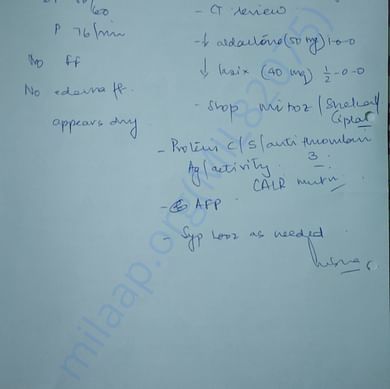 - CT review
60
P 76/min
- ↓ aldactone (50 mg) 1-0-0
No ff
↓ lasix (40 mg) ½-0-0
No edema ff.
- Stop
appears dry
- Protein C/S/anti thrombin
Ag/activity. 3
CALR mutn
- AFP
- Syp looz as needed
milaap.org(MIL82075)